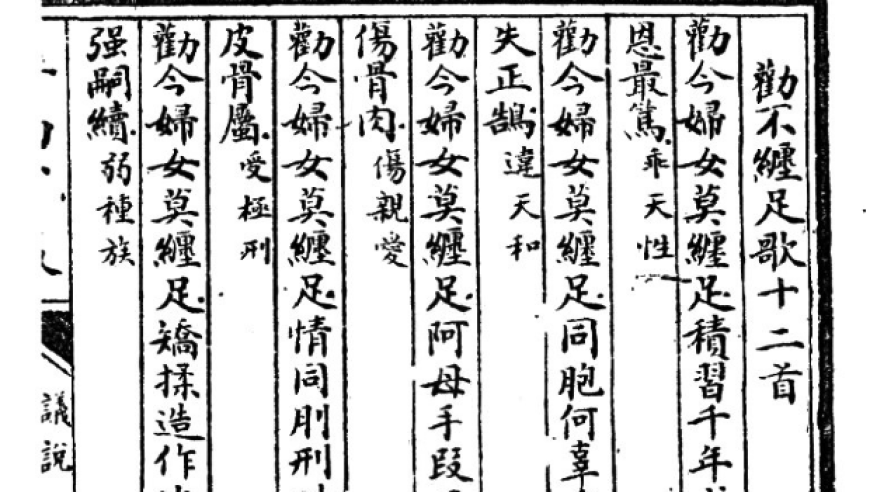 勸不纏足歌十二首
勸今婦女莫纏足積習千年
恩最篤乖天性
勸今婦女莫纏足同胞何辜
失正鵠違天和
勸今婦女莫纏足阿母手段
傷骨肉傷親愛
勸今婦女莫纏足情同刖刑
皮骨屬受極刑
勸今婦女莫纏足矯揉造作
强嗣續弱種族
議說